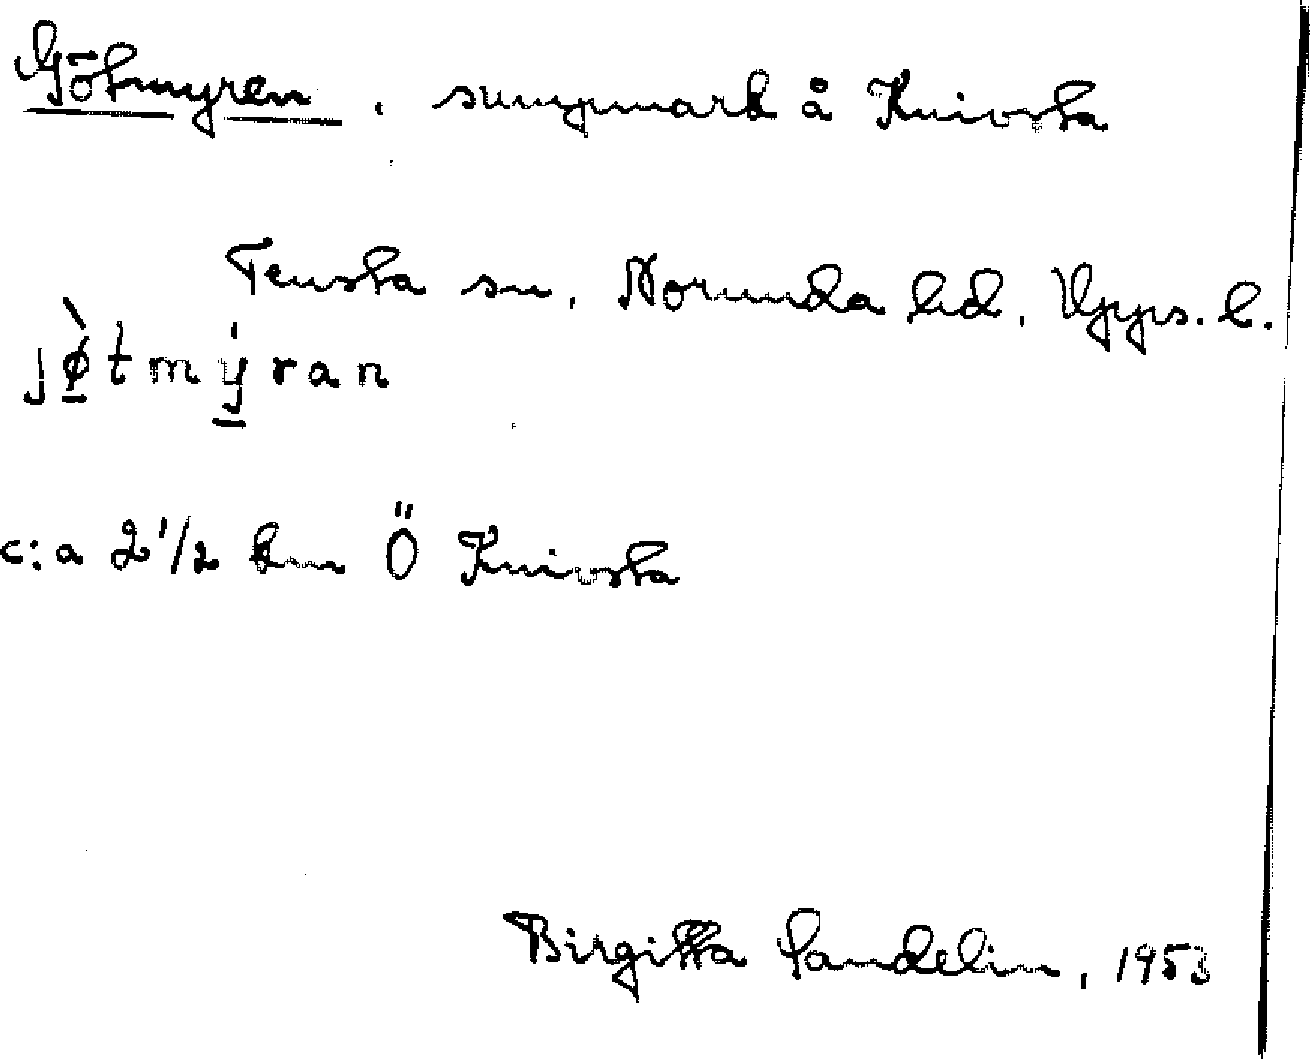 Götmyren, sumpmark å Knivsta
Tensta sn, Norunda hd, Upps. l.
jø̀tmýran
c:a 2 1/2 km Ö Knivsta
Birgitta Sandelin, 1953